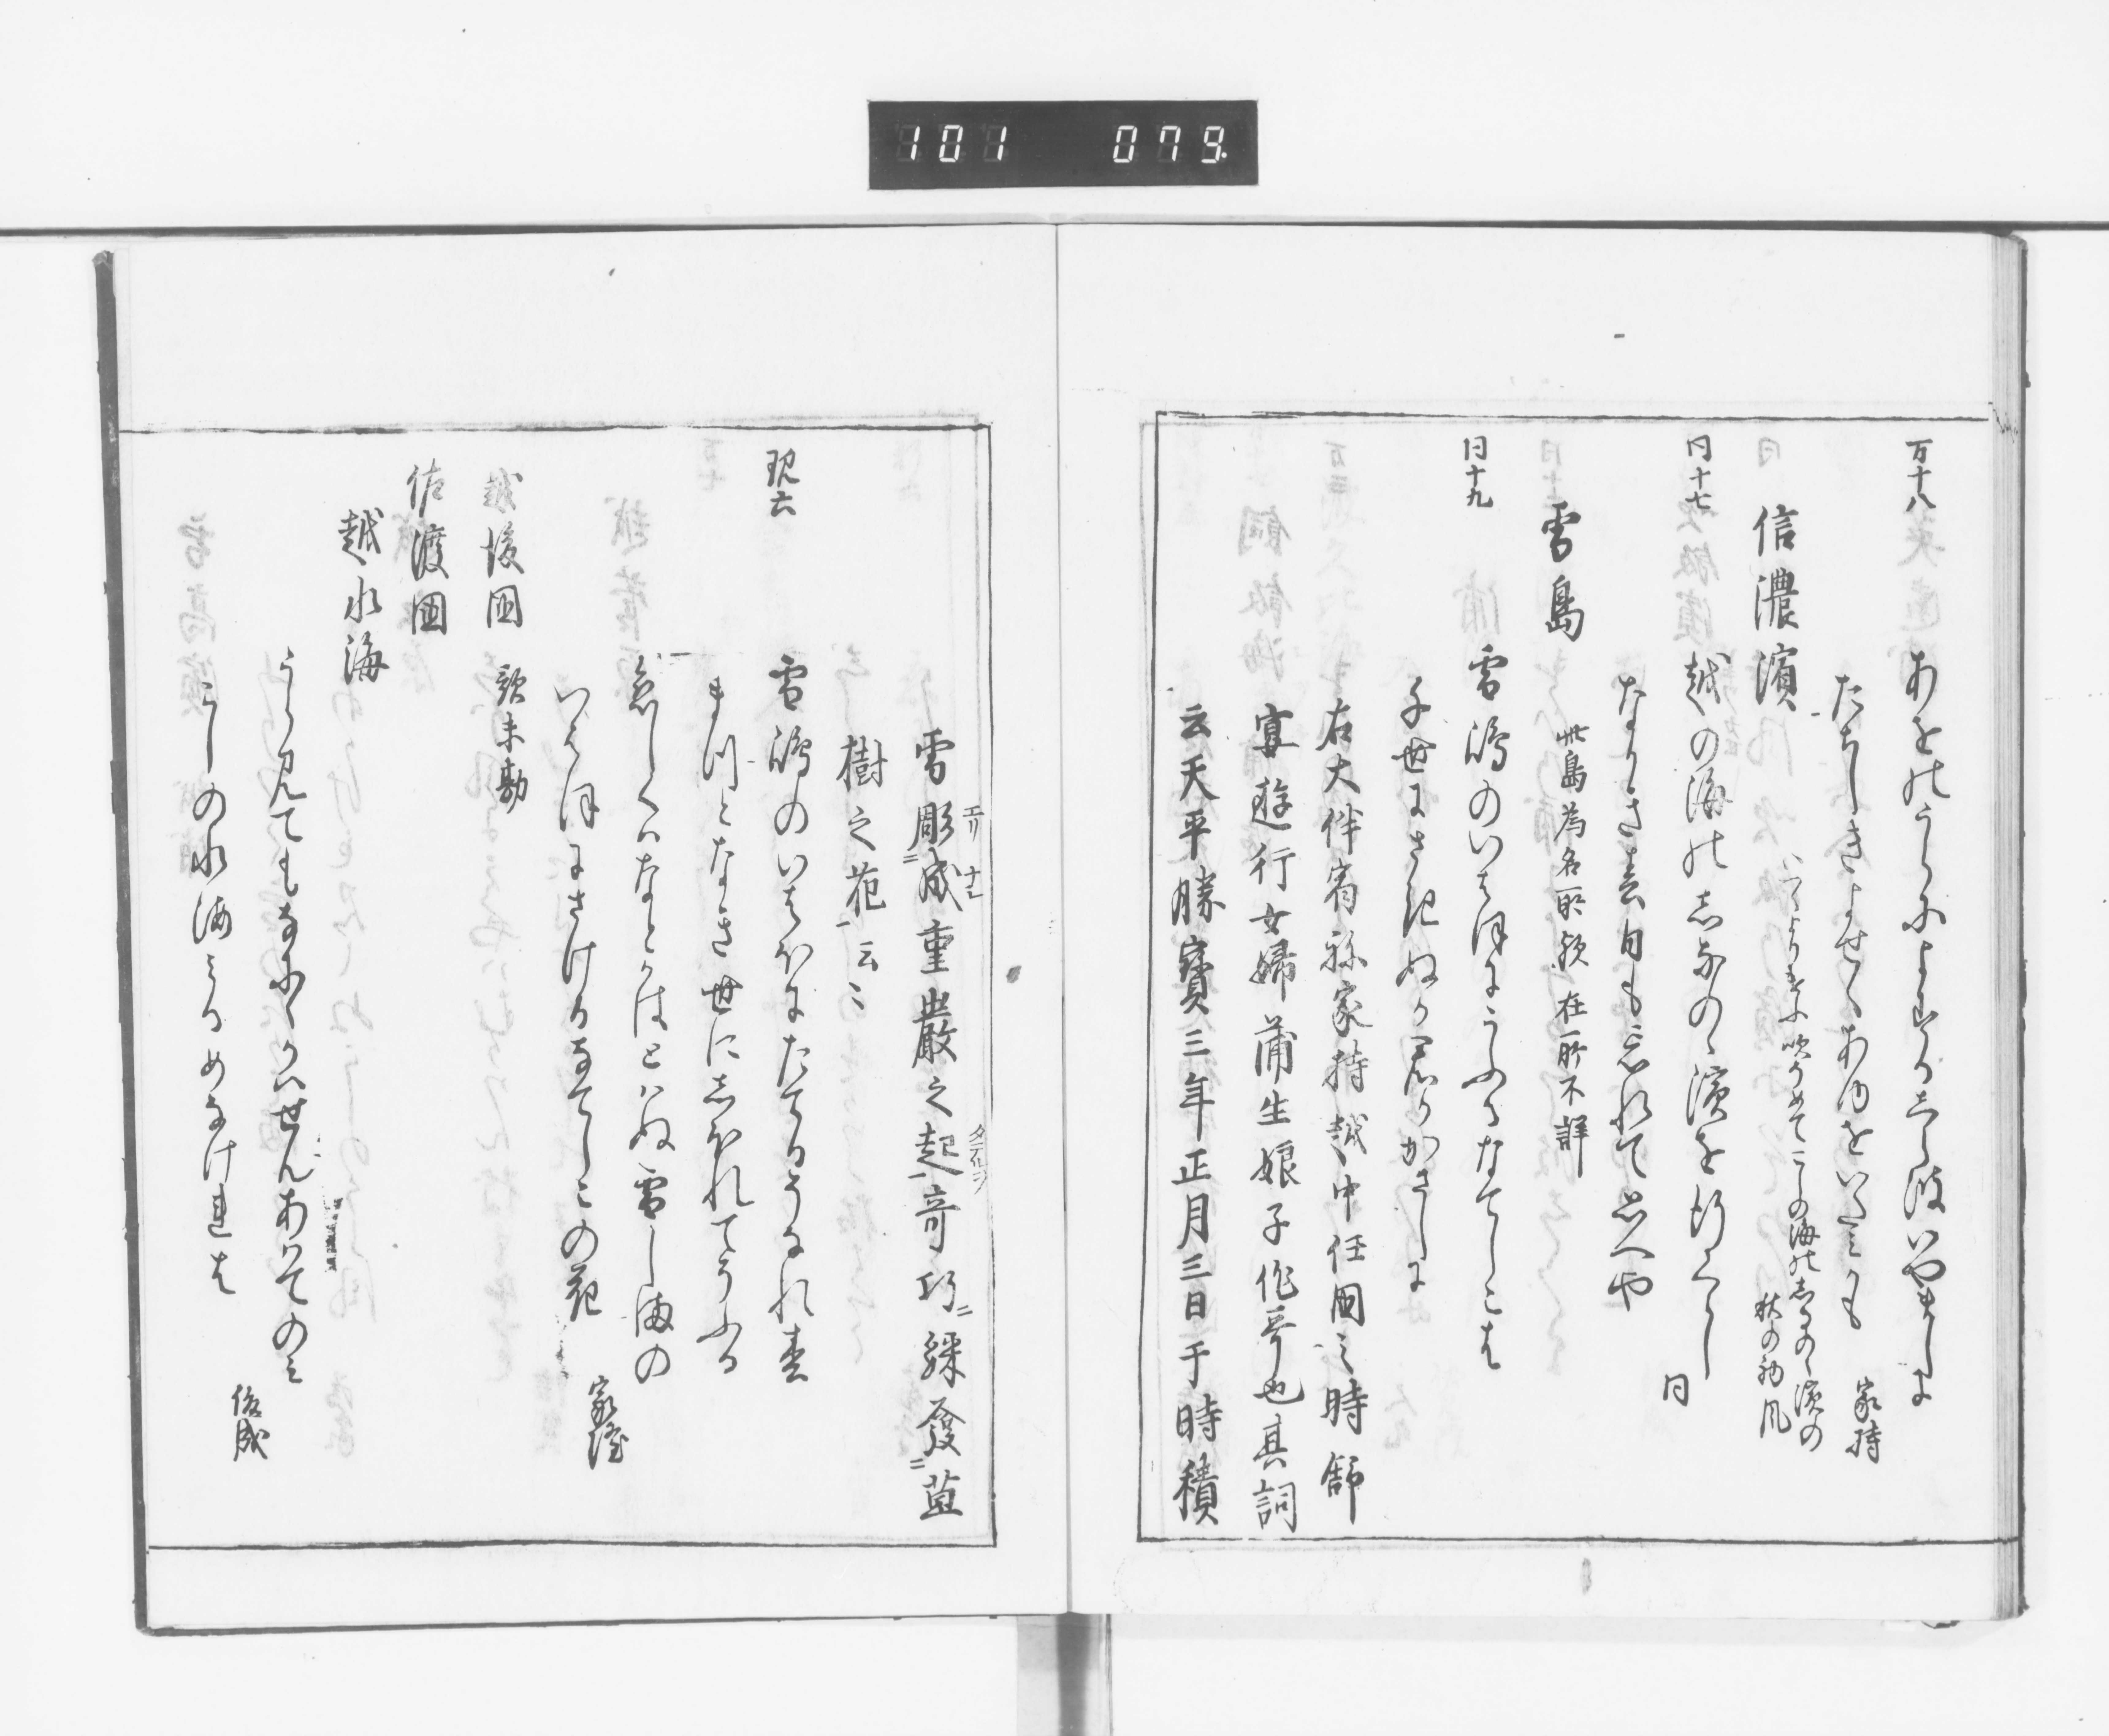 101 079
万十八
あをのうらによするしら波いやましに
たちしきよせくあゆをいたみかも 家持
信濃濱
いつよりもけふ吹そめてこしの海のしなのゝ濱の
秋の初風
同十七
越の海のしなのゝ濱を行くらし
なかき春日も忘れて思へや 同
雪島 此島為名所歟在所不詳
同十九
雪嶋のいはほにうふるなてしこは
千世にさきぬか君かかさしに
右大伴宿祢家持越中任国之時飾
宴遊行女婦蒲生娘子作哥也其詞
云天平勝寳三年正月三日于時積
雪彫成重巖之起奇巧綵發草
エリ ナセ
タテルヲ
樹之花云〻
現六
雪嶋のいはほにたてるそなれ
まつとなき世にしほれてそふる
恋しくはなとかはとはぬ雪しまの
いはほにさけるなてしこの花 家隆
越後国 歌未勘
佐渡國
越水海
うら見てもなにゝかはせんあはてのみ
こしの水海みるめなけれは 俊成